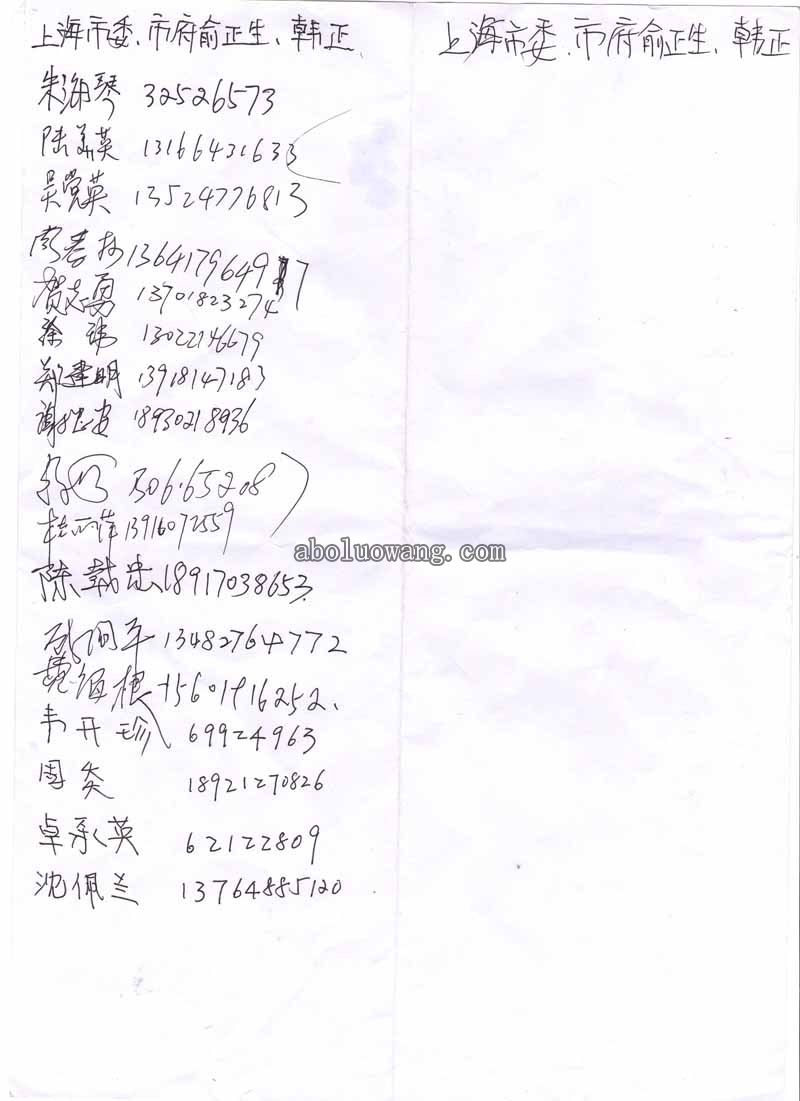 上海市委、市府俞正生、韩正
上海市委、市府俞正生、韩正
朱海琴 32526573
陆美英 13166431633
吴觉英 13524776813
13641796497
贺志勇 13701823274
徐 13022146679
郑建明 13918147183
18930218936
50665208
桂 13916072559
陈载忠 18917038653
13482764772
根 15601916252
韦开珍 69924963
周炎 18921270826
卓承英 62122809
沈佩兰 13764885120
aboluowang.com